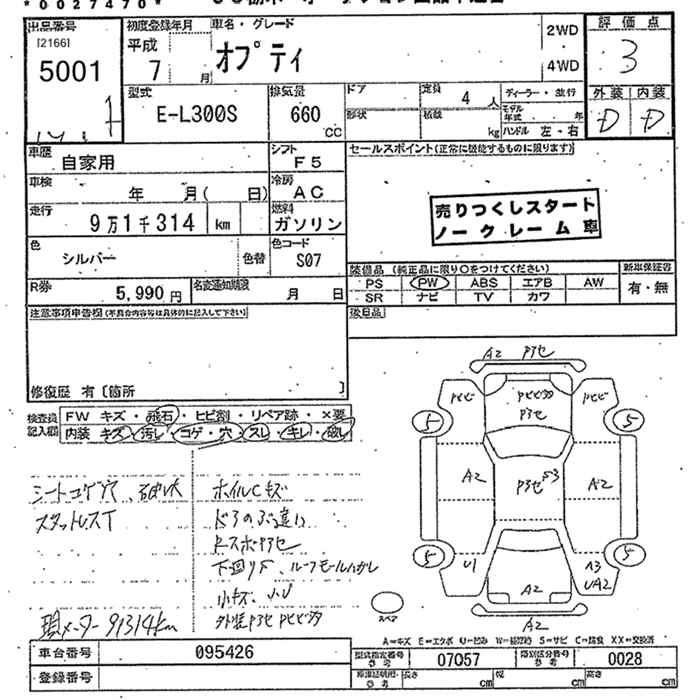 *0027470*
出品番号
[2166]
5001
初度登録年月
平成
7 月
車名・グレード
オプティ
2WD
4WD
評価点
3
外装 内装
D D
型式
E-L300S
排気量
660
CC
ドア
形状
定員
4 人
積載
kg
ディーラー・並行
モデル年式 年
ハンドル 左・右
車歴
自家用
シフト
F5
車検
年 月( 日)
冷房
AC
走行
9万1千314 km
燃料
ガソリン
色
シルバー
色替
色コード
S07
R券
5,990 円
名変通知期限
月 日
セールスポイント(正常に機能するものに限ります)
売りつくしスタート
ノークレーム車
装備品 (純正品に限り○をつけてください)
PS PW ABS エアB AW
SR ナビ TV カワ
新車保証書
有・無
後日品
注意事項申告欄(不具合内容等は具体的に記入して下さい)
修復歴 有〔箇所 〕
検査員記入欄
FW キズ・飛石・ヒビ割・リペア跡・×要
内装 キズ・汚レ・コゲ・穴・スレ・キレ・破レ
シートコゲ穴、破レ大
スタットレスT
ホイルCキズ
ドアのぶ違い
Rスポアセ
下回りS、ルーフモールハガレ
小キズ、小U
現メーター91314km
A2
5
5
A2
A2
5
5
U1
A3
UA2
A2
A2
スペア
A=キズ E=エクボ U=凹み W=補修跡 S=サビ C=腐食 XX=交換済
車台番号
095426
登録番号
型式指定番号
参考
07057
類別区分番号
参考
0028
車検証明用・参考
長さ cm
幅 cm
高さ cm